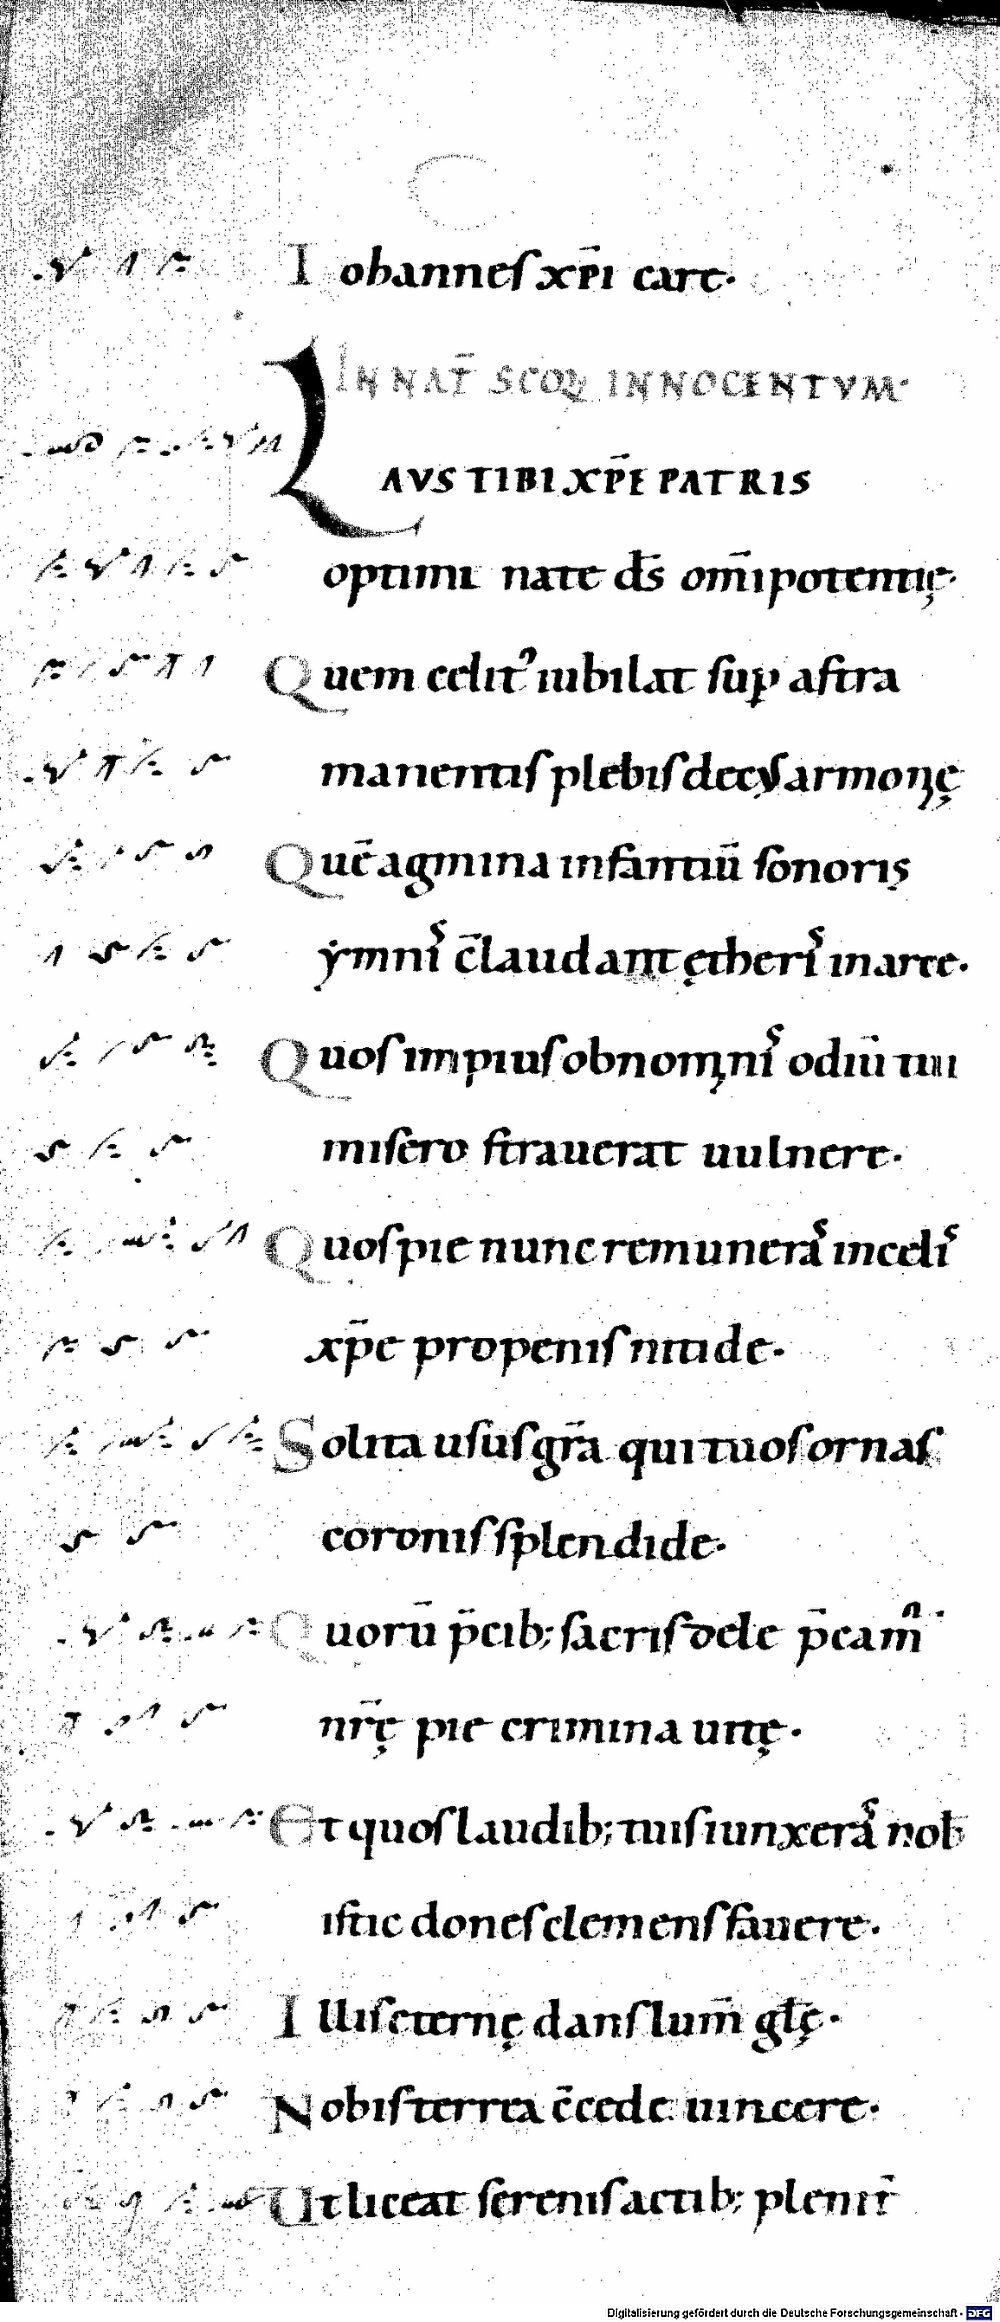 Iohannes xp̄i care·
IN NAT̄ SCOꝜ INNOCENTVM·
LAVS TIBI XP̄E PATRIS
optimi nate d̄s om̄ipotentię·
Quem celit᾿ iubilat sup̱ astra
manentis plebis decus armonię
Quē agmina infantiū sonoris
ẏmnis c̄laudant ętheris in arce·
Quos impius ob nominis odiū tui
misero strauerat uulnere·
Quos pie nunc remuneras in celis
xp̄e propenis nitide·
Solita usus gr̄a qui tuos ornas
coronis splendide·
Quorū p̄cib; sacris dele p̄cam᾿
nr̄ę pie crimina uitę·
Et quos laudib; tuis iunxeras nob̄
istic dones clemens fauere·
Illis eternę dans lum̄ gl̄ę·
Nobis terrea c̄cede uincere·
Ut liceat serenis actib; plenit̄
Digitalisierung gefördert durch die Deutsche Forschungsgemeinschaft - DFG